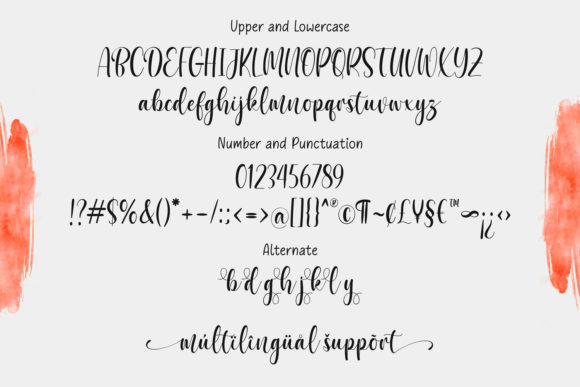 Upper and Lowercase
ABCDEFGHIJKLMNOPQRSTUVWXYZ
abcdefghijklmnopqrstuvwxyz
Number and Punctuation
0123456789
!?#$%&()*+-/:;<=>@[]{}^®©¶~¢£¥§€™∞¡¿‹›
Alternate
b d g h j k l y
múltïlîngüål šuppõrt